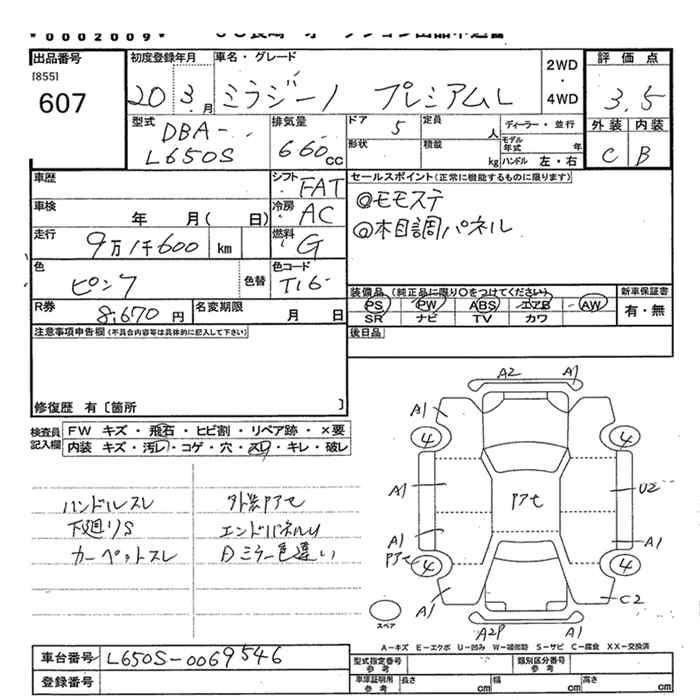 0002009
出品番号
[855]
607
初度登録年月
20 3 月
車名・グレード
ミラジーノ プレミアムL
2WD
・
4WD
評価点
3.5
外装 内装
C B
型式
DBA-
L650S
排気量
660 cc
ドア
5
定員
人
ディーラー・並行
形状
積載
kg
モデル年式
年
ハンドル 左・右
車歴
シフト
FAT
セールスポイント(正常に機能するものに限ります)
◎モモステ
◎木目調パネル
車検
年 月( 日)
冷房
AC
走行
9万1千600 km
燃料
G
色
ピンク
色替
色コード
T16
装備品(純正品に限り○をつけてください)
PS PW ABS エアB AW
SR ナビ TV カワ
新車保証書
有・無
R券
8,670 円
名変期限
月 日
後日品
注意事項申告欄(不具合内容等は具体的に記入して下さい)
修復歴 有〔箇所 〕
検査員
記入欄
FW キズ・飛石・ヒビ割・リペア跡・×要
内装 キズ・汚レ・コゲ・穴・スレ・キレ・破レ
ハンドルスレ
外装アセ
下廻りS
エンドパネルU
カーペットスレ
Dミラー色違い
A2 A1
A1
4 4
A1
アセ
U2
A1
アセ
A1
4 4
A1
C2
A2P A1
スペア
A-キズ E-エクボ U-凹み W-補修跡 S-サビ C-腐食 XX-交換済
車台番号
L650S-0069546
登録番号
型式指定番号
参考
類別区分番号
参考
車庫証明用
参考
長さ
cm
幅
cm
高さ
cm